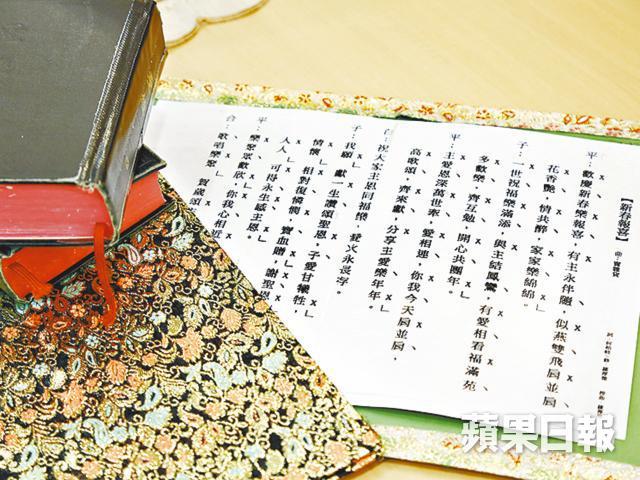 【新春報喜】
曲:賣雜貨
平:歡慶新春樂報喜 有主永伴隨,似燕雙飛肩並肩
花香艷 情共醉 家家樂綿綿。
子:一世祝福樂滿添 與主結鳳鸞,有愛相看福滿苑
多歡樂 齊互勉,開心共團年。
平:主愛恩深萬世牽 愛相連,你我今天肩並肩,
高歌頌 齊來獻,分享主愛樂年年。
合:祝大家主恩同福 火永長存。
子:我願 獻一生讚頌聖恩,子愛甘犧牲,
情懷 相對復憐憫 寶血贈 謝聖恩
人人 可得永生感主恩。
平:樂聚眾歡欣 你我心相近
合:歌唱樂聚 賀歲頌
蘋果日報